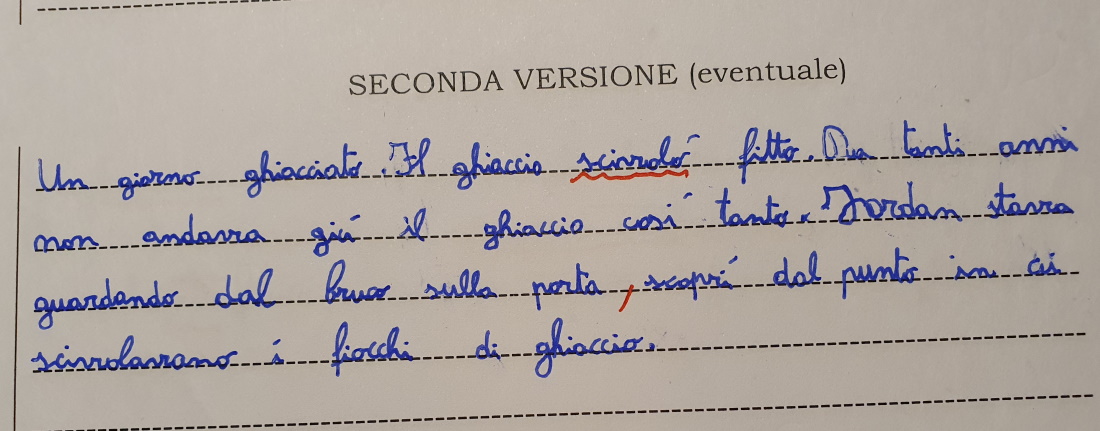 SECONDA VERSIONE (eventuale)
Un giorno ghiacciato. Il ghiaccio scivoló fitto. Da tanti anni
non andava giú il ghiaccio cosí tanto. Jordan stava
guardando dal buco sulla porta, scoprí dal punto in cui
scivolavano i fiocchi di ghiaccio.